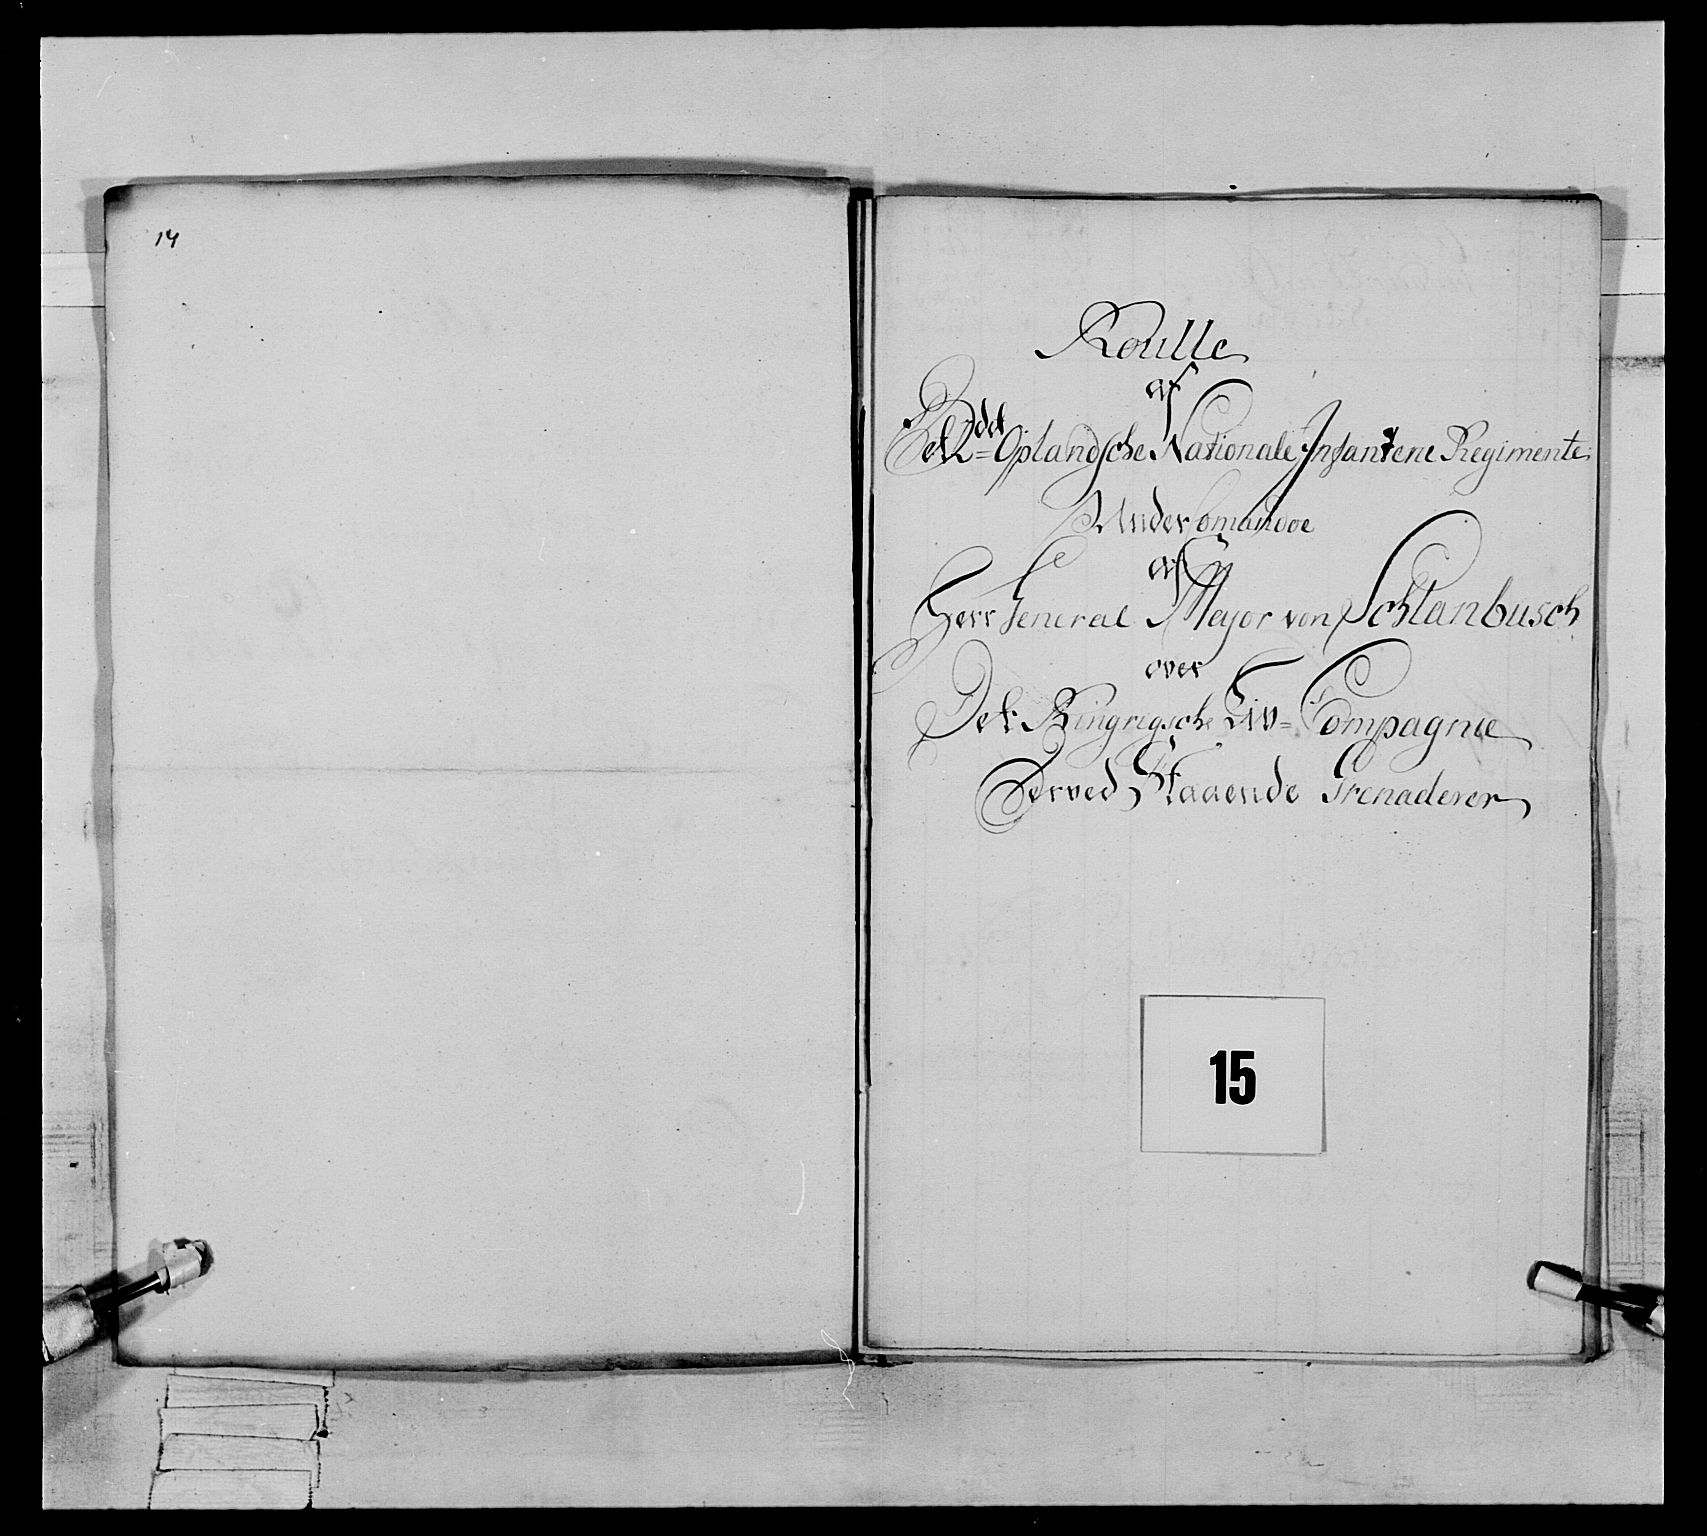 14
Roulle
af
Det 2det Oplandsche Nationale Infanterie Regimente
Under Comandoe
af
Herr General Major von Schlanbusch
over
Det Ringrigsche Liv= Compagnie
Derved Staaende Grenaderer
15